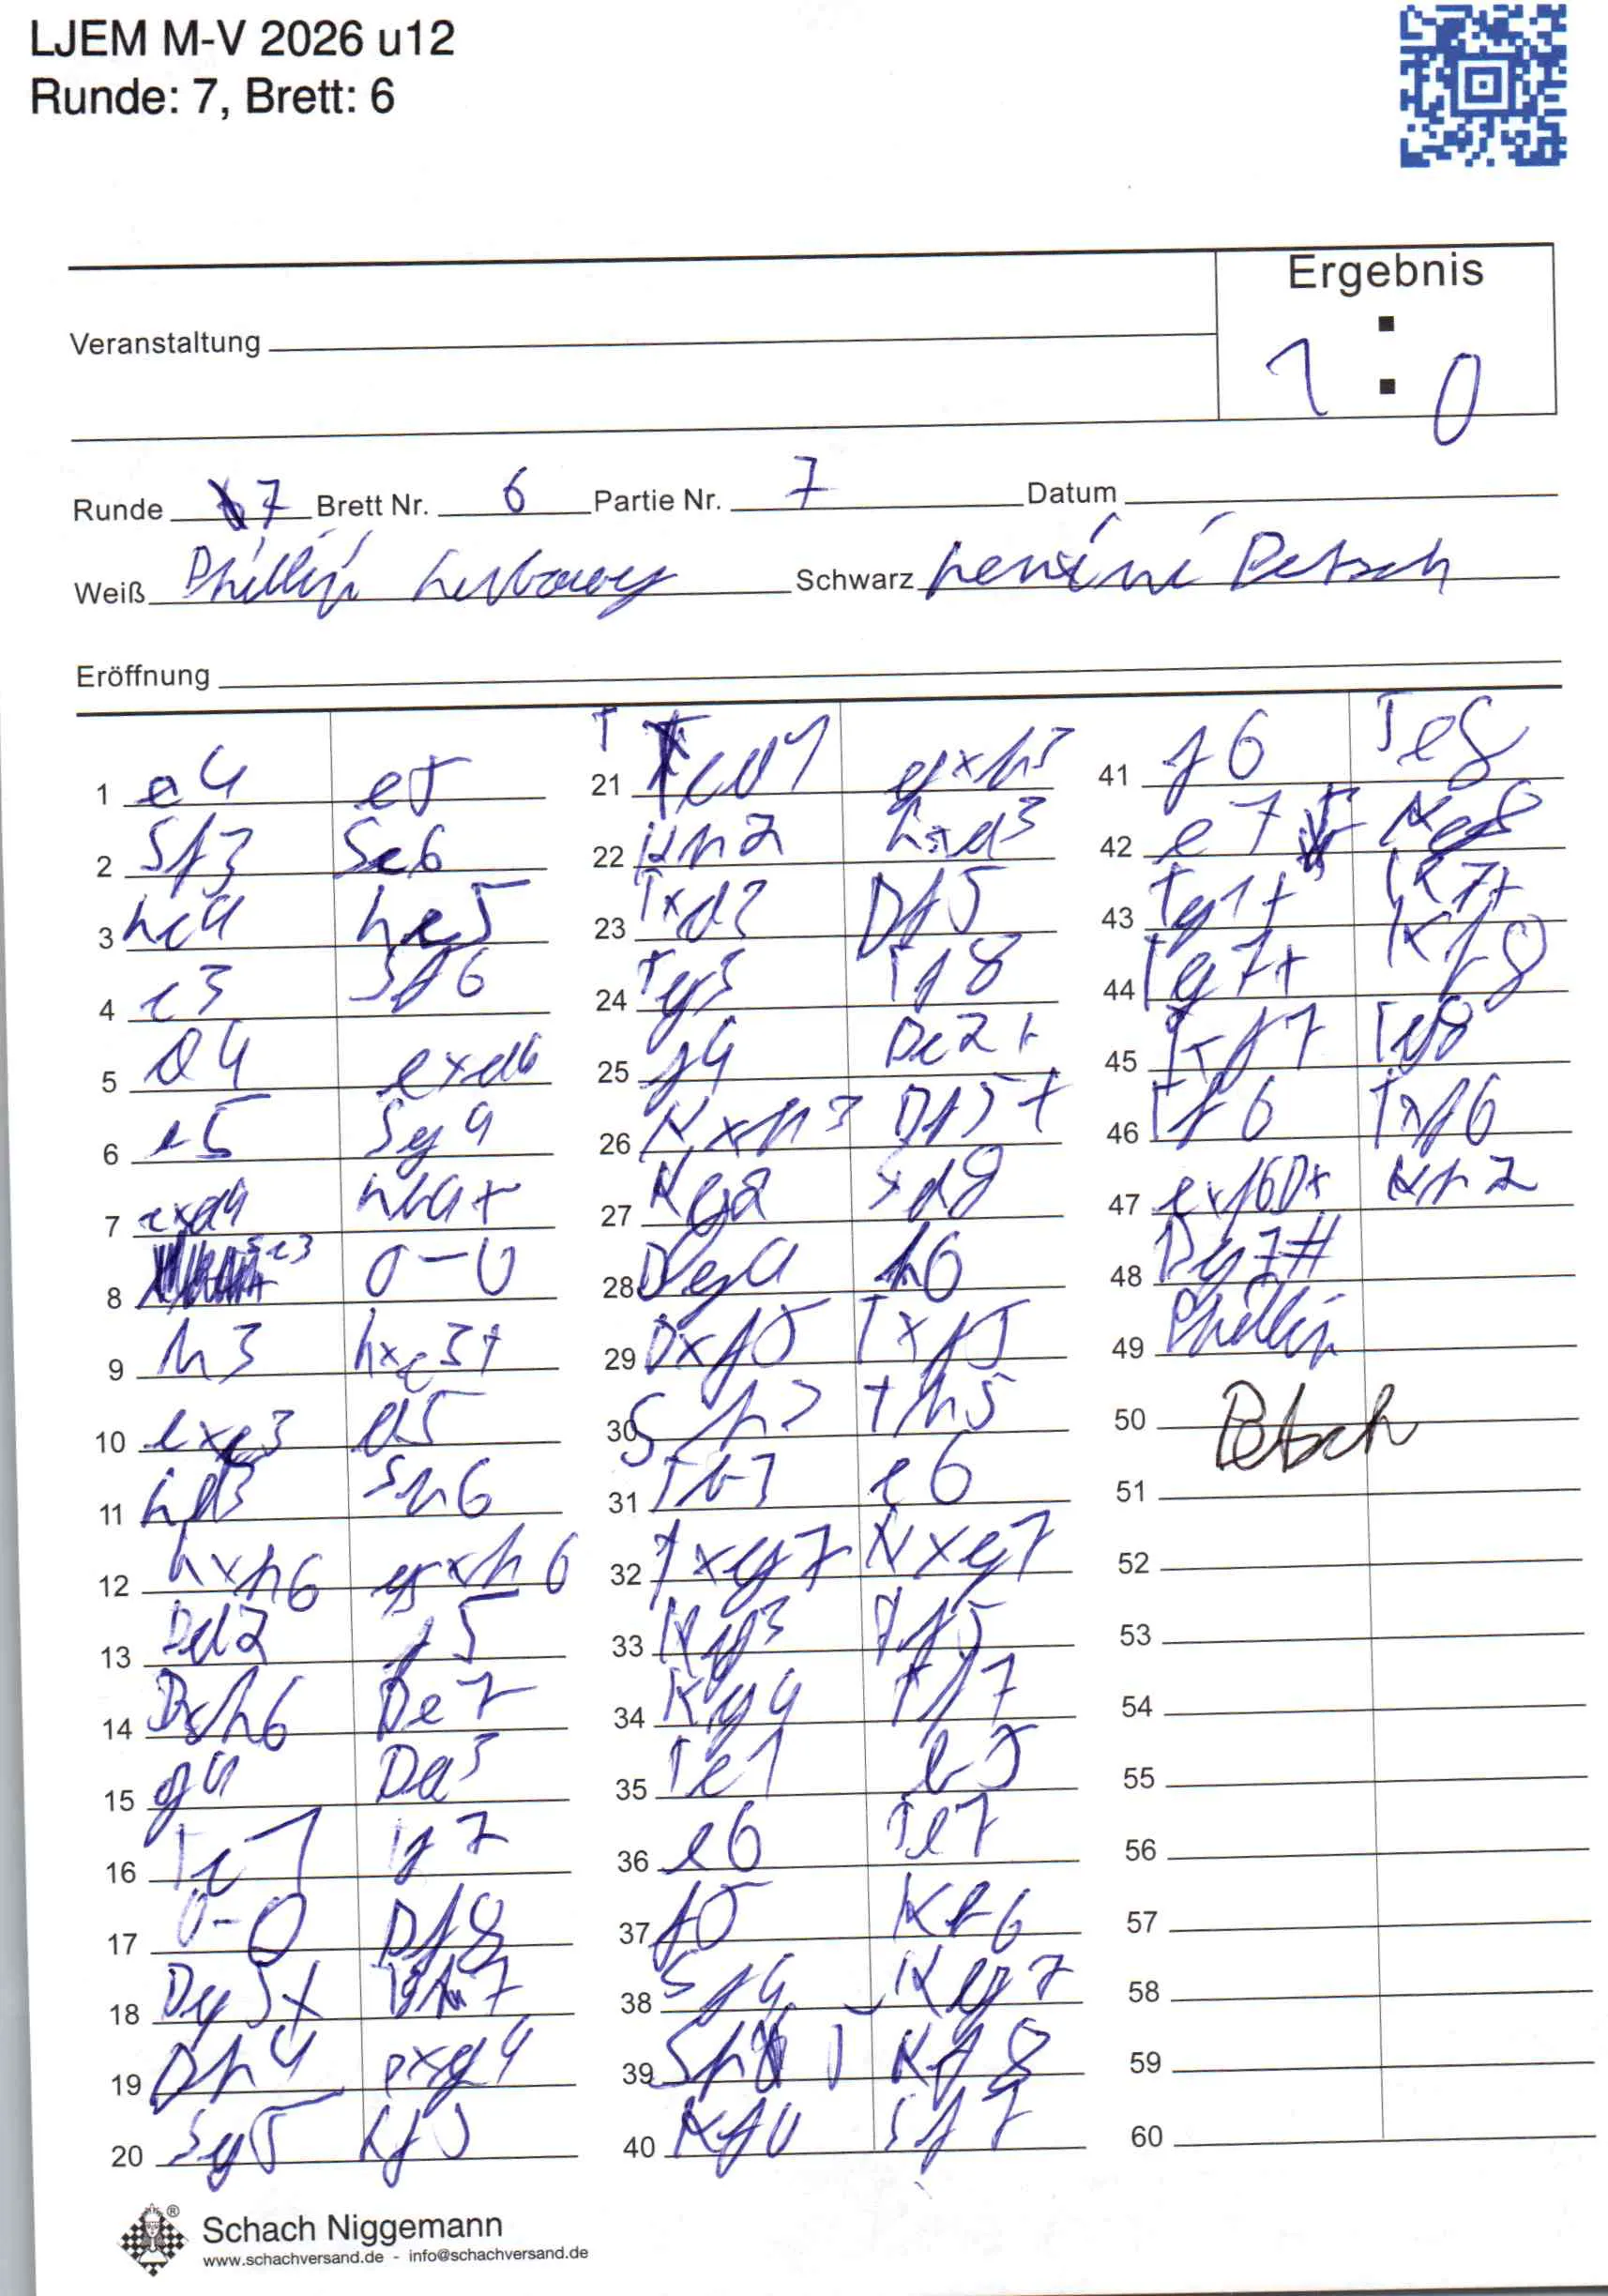 LJEM M-V 2026 u12
Runde: 7, Brett: 6
Ergebnis
1 : 0
Veranstaltung
Runde 7 Brett Nr. 6 Partie Nr. 7 Datum
Weiß Phillip Schwarz Petsch
Eröffnung
1 e4 e5
2 Sf3 Sc6
3 Lc4 Lc5
4 c3 Sf6
5 d4 exd4
6 e5 Sg4
7 cxd4 Lb4+
8 Sc3 0-0
9 h3 Lxc3+
10 bxc3 d5
11 Ld3 Sh6
12 Lxh6 gxh6
13 Dd2 f5
14 Dxh6 De7
15 g4 Da3
16 Tc1 Tf7
17 0-0 Df8
18 Dg5+
19 Dh4 fxg4
20 Sg5 Lf5
21 gxh3
22 Kh2 Lxd3
23 Txd3 Df5
24 Tg3 Tf8
25 f4 Dc2+
26 Kxh3 Df5+
27 Kg2 Sd8
28 Dg4 h6
29 Dxf5 Txf5
30 Th5
31 c6
32 Txg7 Kxg7
33 Kg3 Tf5
34 Kg4 Tf7
35 Te1 b5
36 e6 Te7
37 f5 Kf6
38 Kg7
39 Kf8
40 Kf4
41 f6 Te8
42 e7 Kg8
43 Tg1+ Kh7+
44 Tg7+ Kf8
45 Txf7 Tg8
46 Tf6 Txf6
47 exf6D+ Kh2
48 Dg7#
49 Phillip
50 Petsch
51
52
53
54
55
56
57
58
59
60
Schach Niggemann
www.schachversand.de - info@schachversand.de